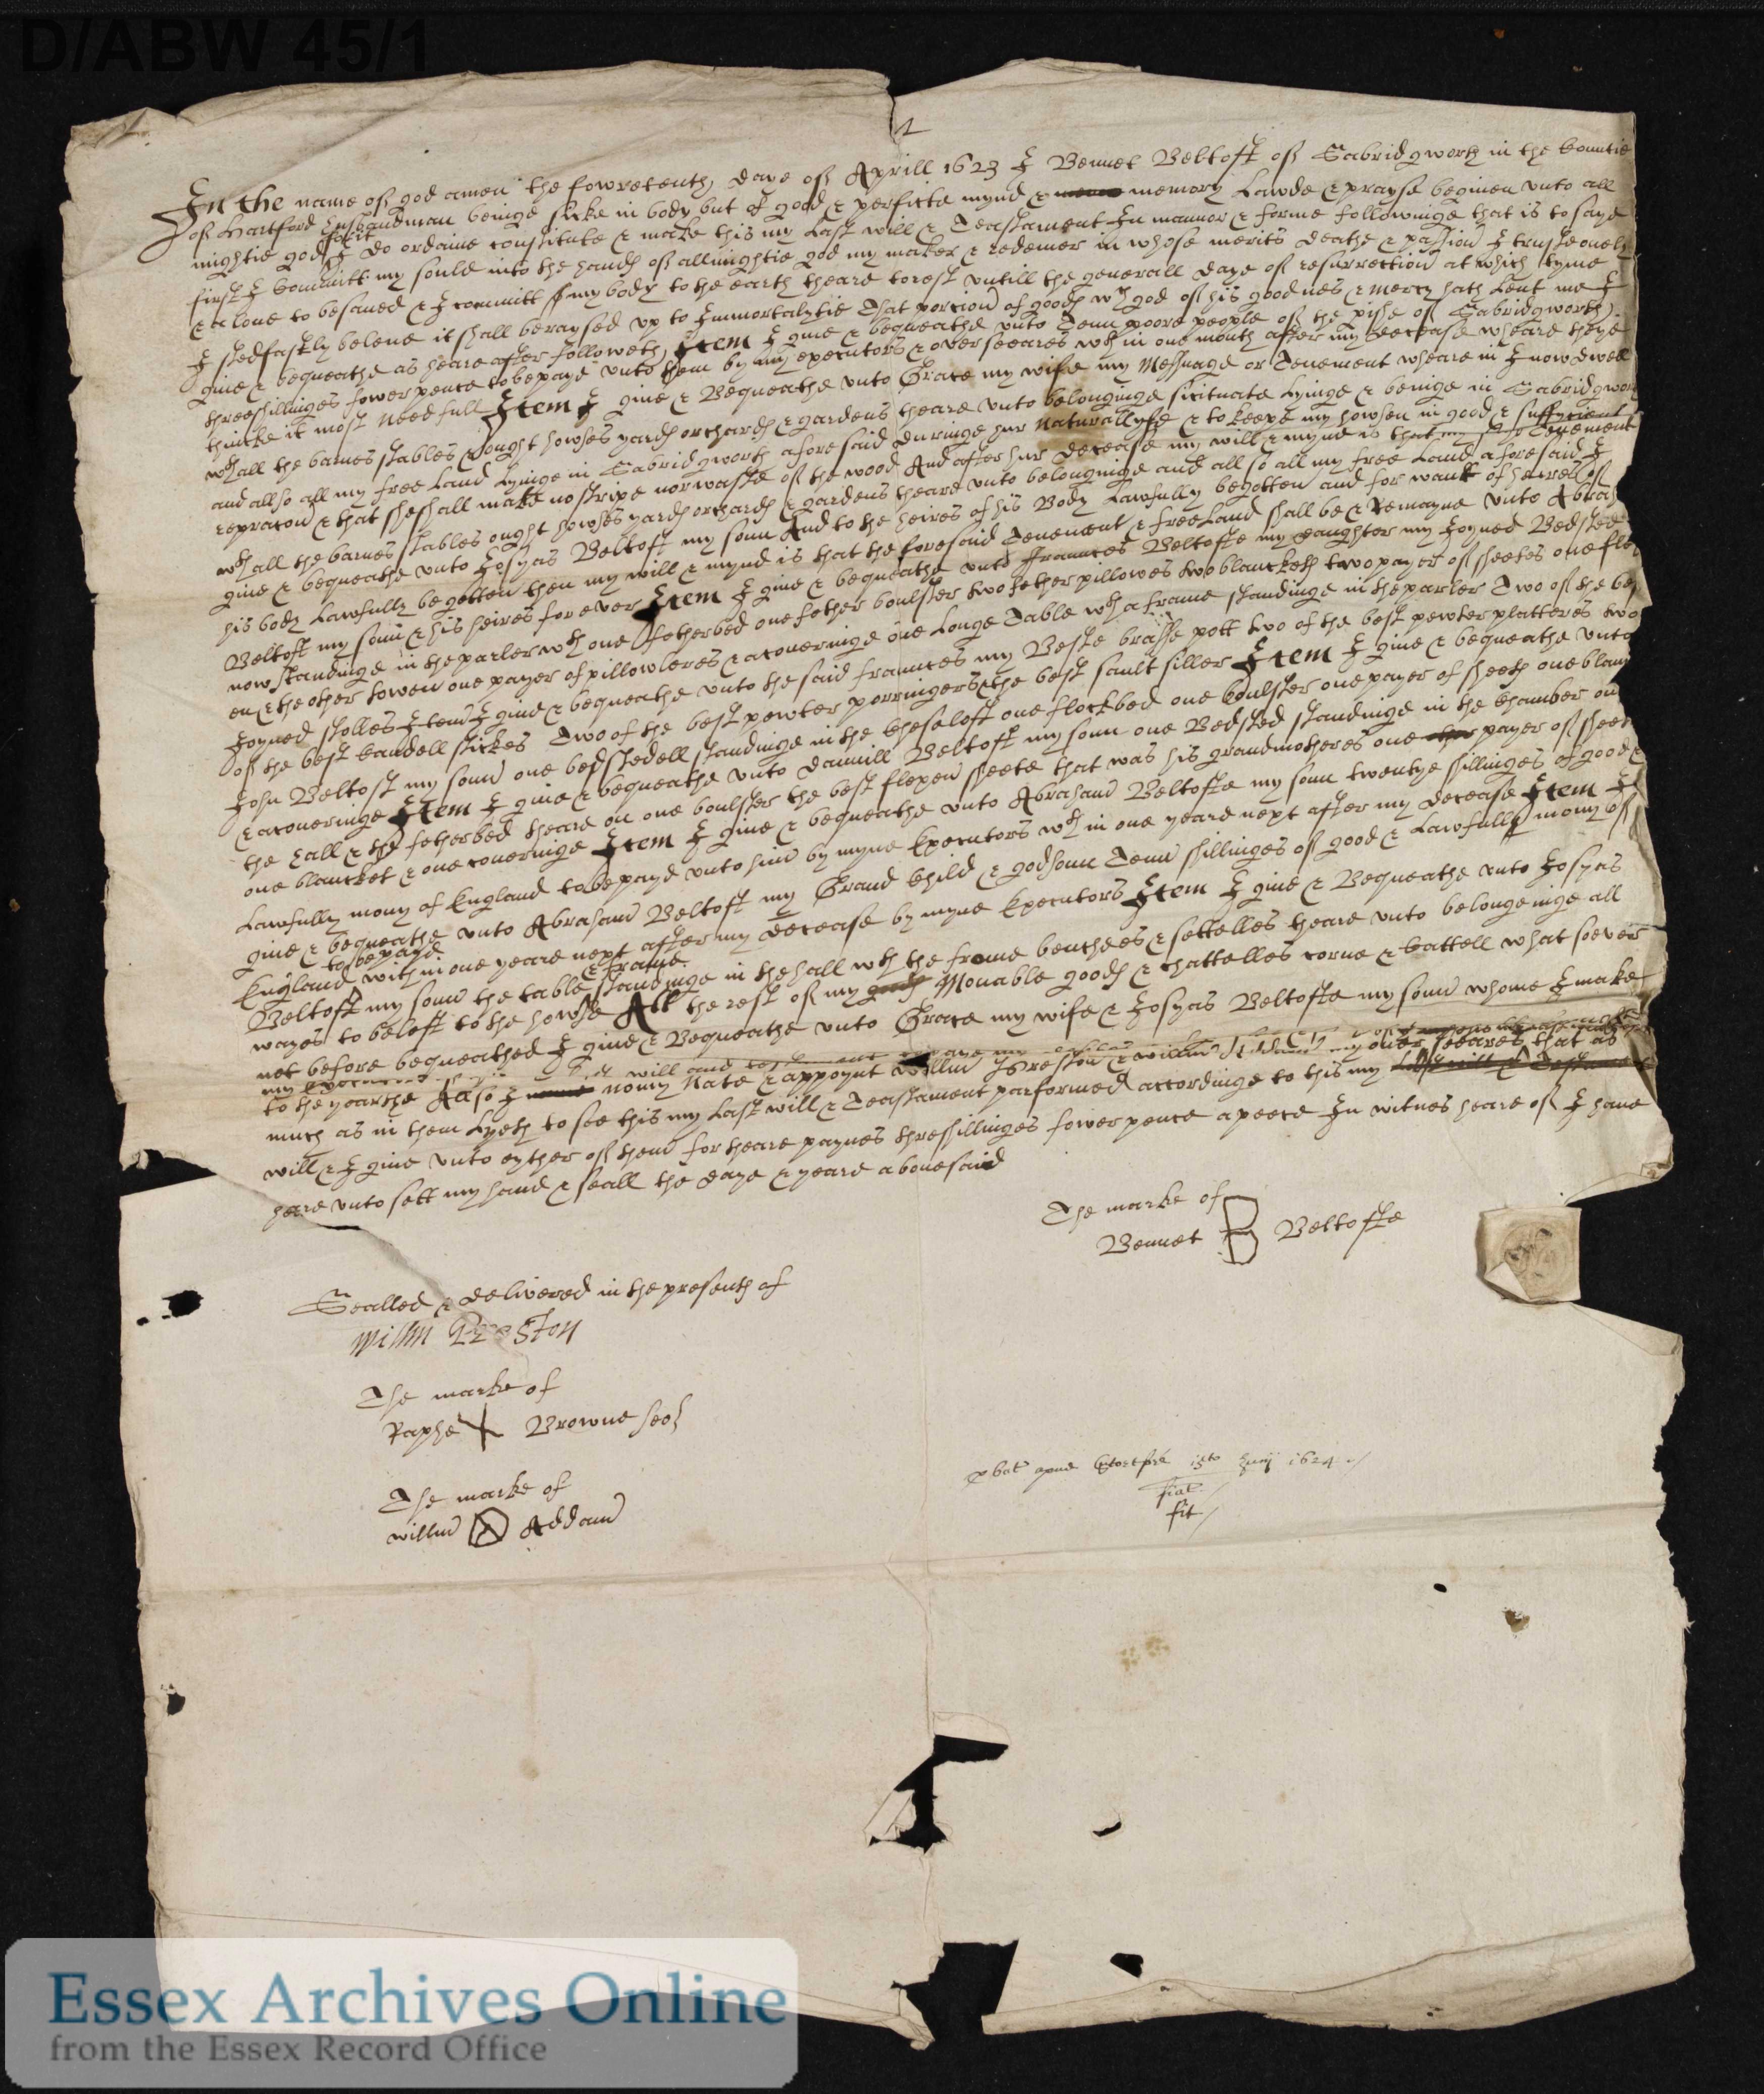 D/ABW 45/1
1
In the name off god amen the fowretenth daye off Aprill 1623 I Bennet Beltoft off Sabridgworth in the Countie
off Hartford husbandman beinge sicke in body but of good & perfitte mynd & memory Lawde & prayse be given unto all
mightie god for it I do ordaine constitute & make this my Last will & Teastament In mannor & forme followinge that is to saye
first I committ my soule into the hands off allmightie god my maker & redemer in whose merits deathe & passion I truste onely
& alone to be saved & I committ my body to the earth theare to rest untill the generall daye off resurrection at which tyme
I stedfastly beleve it shall be raysed up to Immortalytie That portion of goods wch god off his goodnes & mercy hath Lent me I
give & bequeathe as heareafter followeth Item I give & bequeathe unto Tenn poore people off the pishe off Sabridgworth
threeshillinges fower pence to be payd unto them by my executors & overseeares wth in one month after my decease wheare theye
thincke it most needfull Item I give & Bequeathe unto Grace my wife my Messuage or Tenement wheare in I now dwell
wth all the barnes stables ought howses yards orchards & gardens theare unto belonginge scituate Lyinge & beinge in Sabridgwor
and allso all my free Land Lyinge in Sabridgworth aforesaid duringe hur naturall lyfe & to keepe my howsen in good & suffycient
repracon & that she shall make no stripe nor waste off the wood And after hur decease my will & mynd is that my Tenement
wth all the barnes stables ought howses yards orchards & gardens theare unto belonginge and all so all my free Land aforesaid I
give & bequeathe unto Josyas Beltoft my sonn And to the heires of his Body Lawfully begotten and for want of heires off
his body Lawfully begotten then my will & mynd is that the foresaid Tenement & free Land shall be & Remayne unto Abrah
Beltoft my sonn & his heires for ever Item I give & bequeathe unto Frannces Beltofte my daughter my Joyned Bedsted
now standinge in the parler wth one fetherbed one fether boulster two fether pillowes two blanckets two payer off sheetes one flex
en & the other towen one payer of pillowberes & a coveringe one Longe Table wth a frame standinge in the parler Two off the bes
Joyned stolles Item I give & bequeathe unto the said frannces my Beste brasse pott two of the best pewter platteres two
off the best Candell stickes Two of the best pewter porringers & the best sault siller Item I give & bequeathe unto
John Beltoft my sonn one bedstedell standinge in the Chese loft one flockbed one boulster one payer of sheets one blan
& a coveringe Item I give & bequeathe unto Dannill Beltoft my sonn one Bedsted standinge in the Chamber ov
the hall & the fetherbed theare on one boulster the best flexen sheete that was his grandmotheres one payer off sheet
one blancket & one coveringe Item I give & bequeathe unto Abraham Beltofte my sonn twentye shillinges of good &
Lawfully mony of England to be payd unto him by myne Executors wth in one yeare next after my decease Item I
give & bequeathe unto Abraham Beltoft my Grand Child & godsonn Tenn shillinges off good & Lawfully mony off
England to be payd with in one yeare next after my decease by myne Executors Item I give & Bequeathe unto Josyas
Beltoft my sonn the table & frame standinge in the hall wth the frame benchees & settelles theare unto belongeinge all
wayes to be left to the howse All the rest off my goods Movable goods & chattelles corne & Cattell what soever
not before bequeathed I give & Bequeathe unto Grace my wife & Josyas Beltofte my sonn whome I make
my will and testament
to the yearthe Allso I nomy Nate & appoynt Willm Preston & Willm Addam my over seeares that as
much as in them Lyeth to see this my Last will & Teastament parformed accordinge to this my Last will & Testament
will & I give unto eyther off them for theare paynes threshillinges fower pence a peece In witnes heare off I have
heare unto sett my hand & seall the daye & yeare abovesaid
The marke of
Bennet B Beltofte
Sealled & delivered in the presents of
Willm Preston
The marke of
Raphe X Browne
The marke of
willm Addam
pbat apud Stortford Junij 1624
fiat
fit
Essex Archives Online
from the Essex Record Office